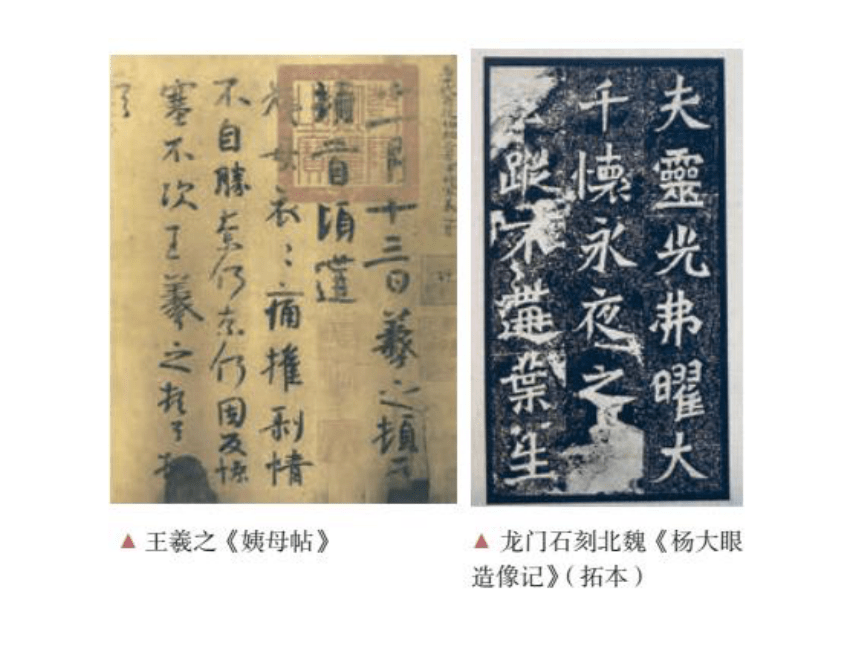 十一月十三日羲之頓首
頓首頃遘
姨母哀〻痛摧剝情
不自勝奈何奈何因反慘
塞不次王羲之頓首頓
首
夫靈光弗曜大
千懷永夜之
蹤不遘葉生
▲ 王羲之《姨母帖》
▲ 龙门石刻北魏《杨大眼
造像记》（拓本）